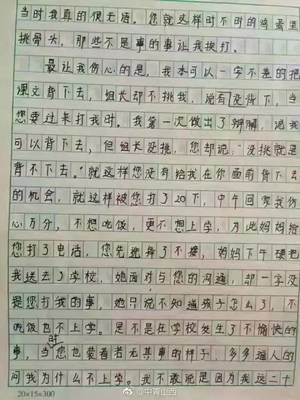 当时我真的很无语。您就这样时不时的鸡蛋里
挑骨头，那些不是事的事让我挨打。
最让我伤心的是，我本可以一字不差的把
课文背下去，组长却不挑我，说有没背下，当
您要过来打我时。我第一次做出了辩解，说我
可以背下去，但组长没挑，您却说"没挑就是
背不下去。"就这样您没有给我在你面前背下去
的机会，就这样被您打了20下，中午回家我伤
心万分，不想吃饭，更不想上学，为此妈妈给
您打了电话，您先迟择了不接，妈妈下午硬把
我送去了学校，她面对与您的沟通，却一字没
提您打我的事，她只说不知道孩子怎么了，不
吃饭也不上学。是不是在学校发生了不愉快的
事，当时您也装着若无其事的样子，多多逼人的
问我为什么不上学。我不敢说是因为我这二十
20×15=300
@中青山西